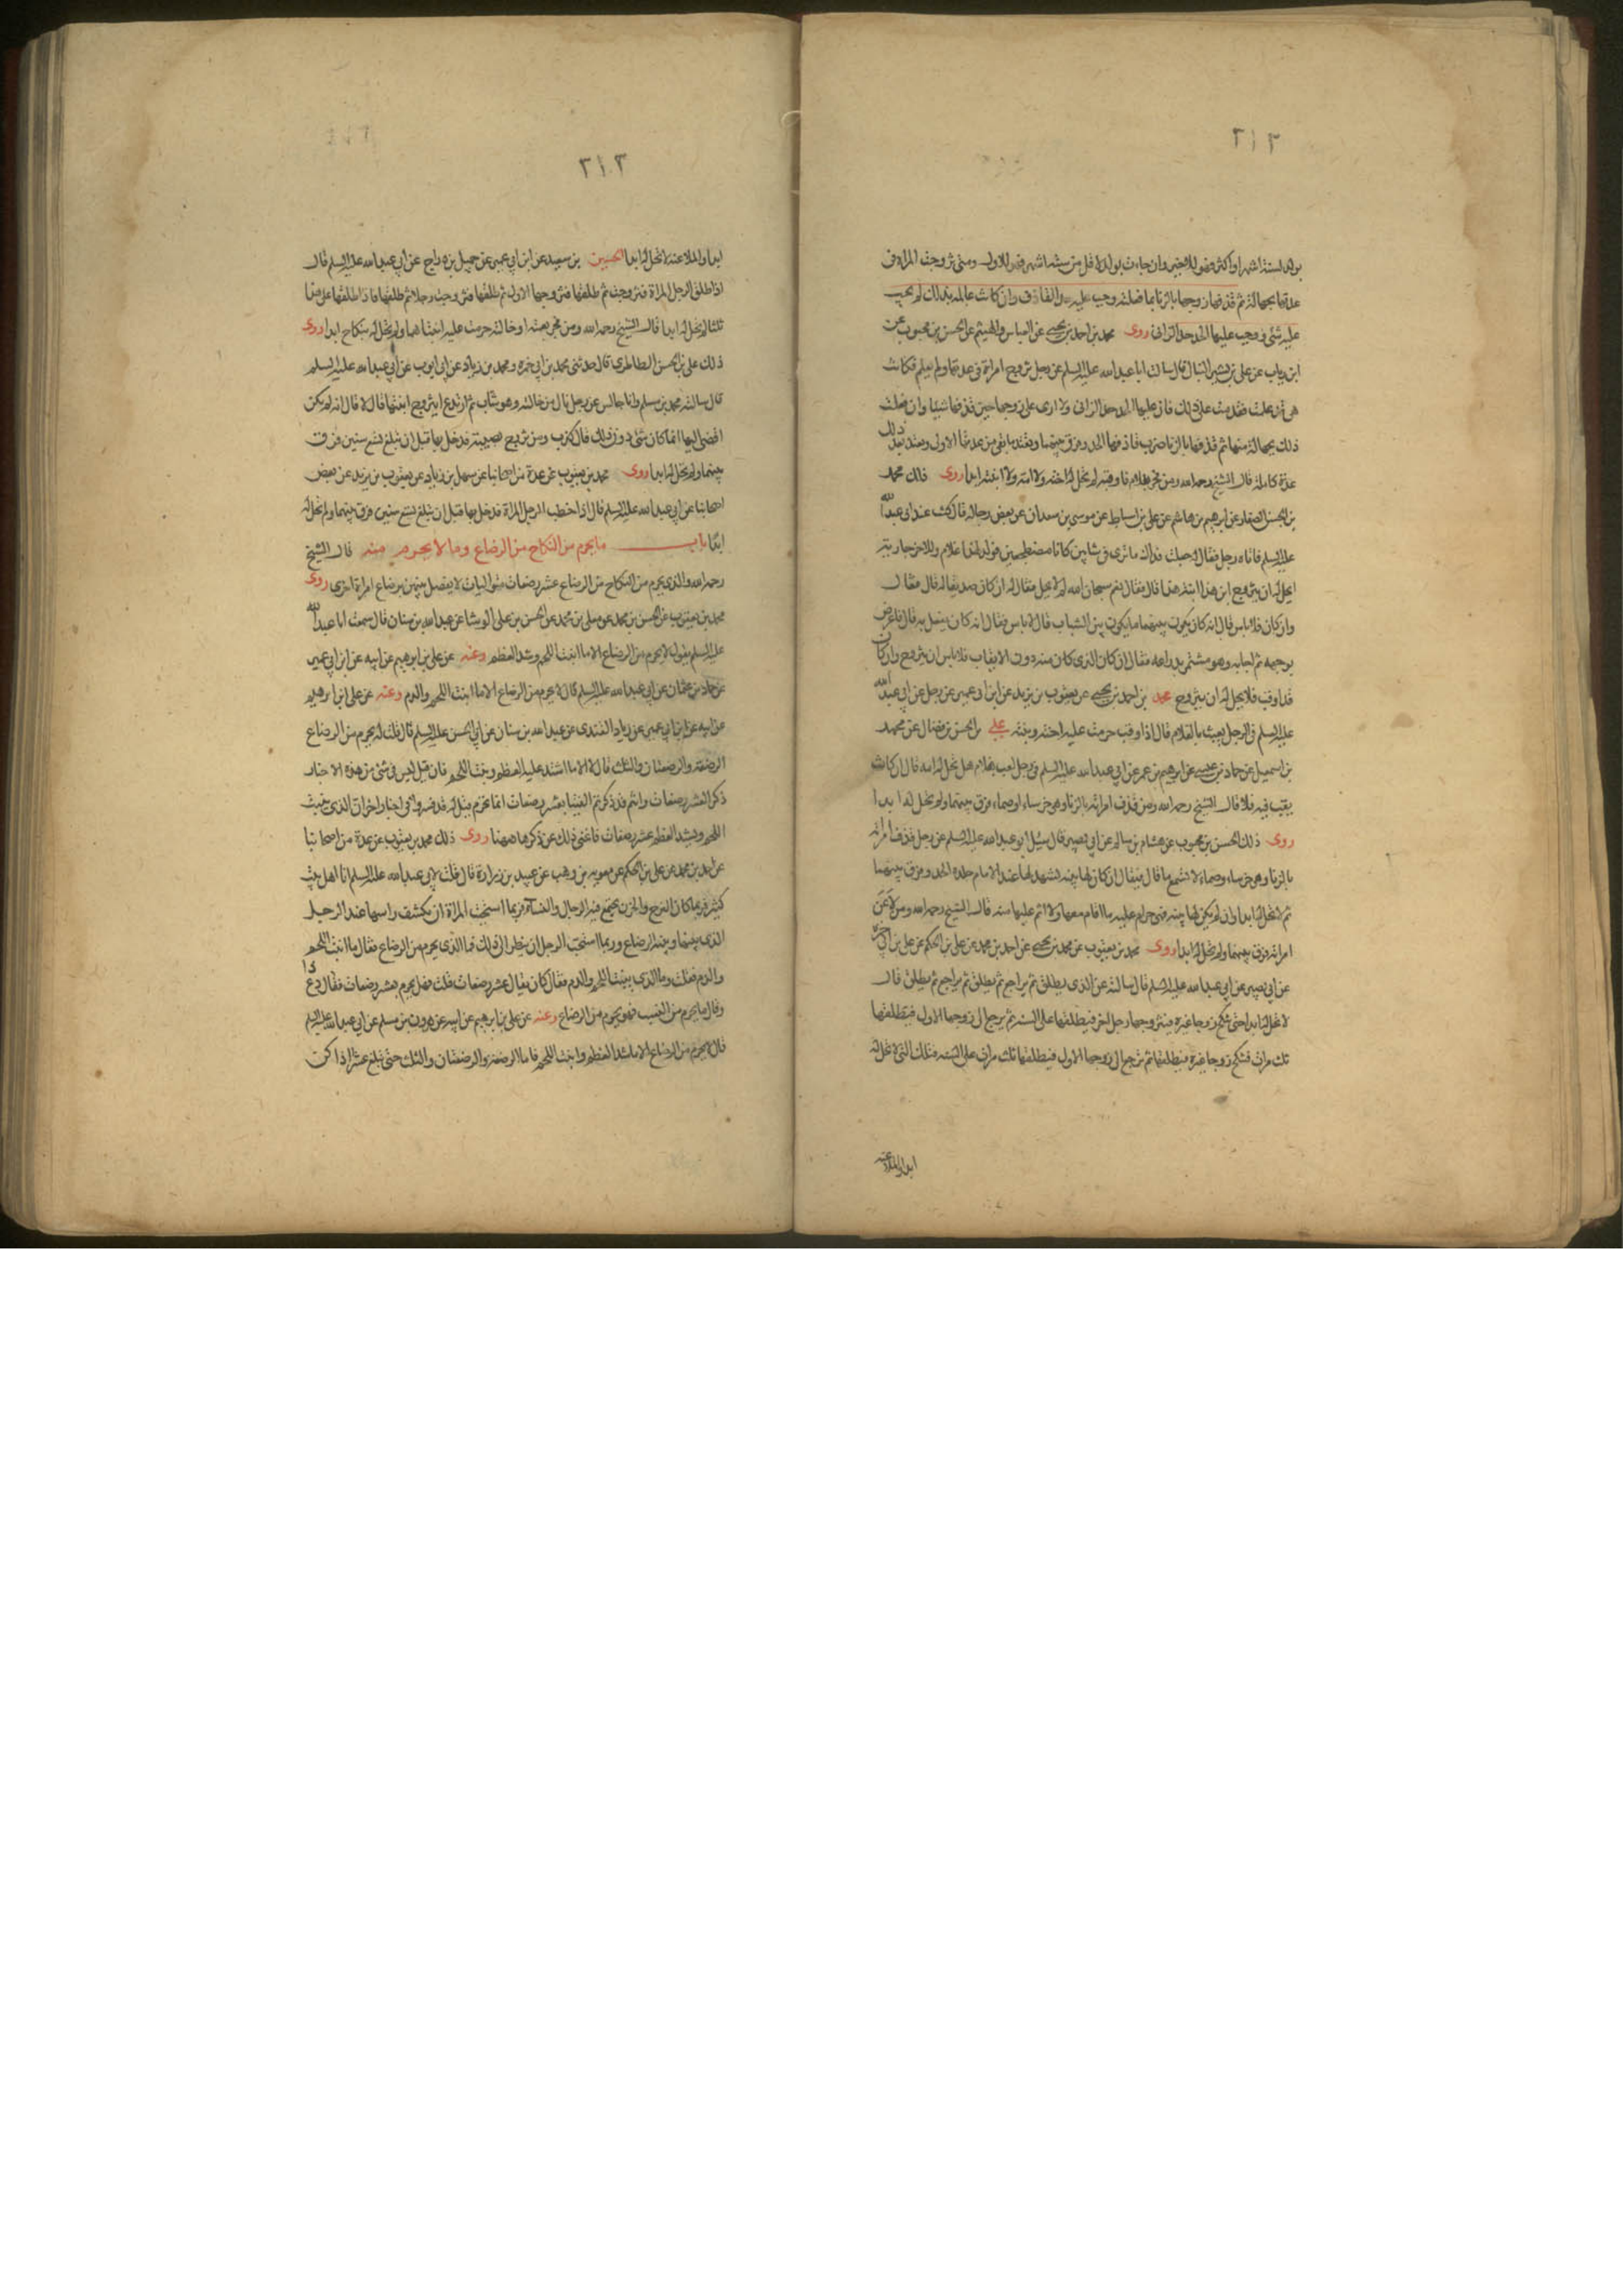 ٢١٣
بولد لستة اشهر او اكثر فهو للاخير وان جاءت بولد لاقل من ستة اشهر فهو للاول ومتى تزوجت المراة فى
عدتها بجهالة ثم قذفها زوجها بالزنا بما فعلته وجب عليه حد القاذف وان كانت عالمة بذلك لم يجب
عليه شئ ووجب عليها الحد حد الزانى روى محمد بن احمد بن يحيى عن العباس والهيثم عن الحسن بن محبوب عن
ابن رياب عن على بن بشير النبال قال سالت ابا عبد الله عليه السلم عن رجل تزوج امراة فى عدتها ولم يعلم فكانت
هى قد علمت فقذفها على ذلك فان عليها الحد حد الزانى ولا ارى على زوجها حين قذفها شيئا وان فعلت
ذلك بجهالة منها ثم قذفها بالزنا ضرب قاذفها الحد وفرق بينهما وتعتد ما بقى من عدتها الاولى وتعتد بعد ذلك
عدة كاملة قال الشيخ رحمه الله ومن فجر بغلام فاوقبه لم تحل له اخته ولا امه ولا ابنته ابدا روى ذلك محمد
بن الحسن الصفار عن ابرهيم بن هاشم عن على بن اسباط عن موسى بن سعدان عن بعض رجاله قال كنت عند ابى عبد الله
عليه السلم فاتاه رجل فقال له جعلت فداك ما ترى فى شابين كانا مضطجعين فولد لهذا غلام وللاخر جارية
ايحل له ان يتزوج ابن هذا ابنة هذا قال فقال نعم سبحان الله لم لا يحل فقال له ان كان صديقا له قال فقال
وان كان فلا باس قال انه كان يكون بينهما ما يكون بين الشباب قال لا باس فقال انه كان يفعل به قال فاعرض
بوجهه ثم اجابه وهو مستتر بذراعه فقال ان كان الذى كان منه دون الايقاب فلا باس ان يتزوج وان كان
قد اوقب فلا يحل له ان يتزوج محمد بن احمد بن يحيى عن يعقوب بن يزيد عن ابن ابى عمير عن رجل عن ابى عبد الله
عليه السلم فى الرجل يعبث بالغلام قال اذا اوقب حرمت عليه اخته وبنته على بن الحسن بن فضال عن محمد
بن اسمعيل عن حماد بن عيسى عن ابرهيم بن عمر عن ابى عبد الله عليه السلم فى رجل لعب بغلام هل تحل له امه قال ان كان
يقب فيه فلا قال الشيخ رحمه الله ومن قذف امراته بالزنا وهى خرساء او صماء فرق بينهما ولم تحل له ابدا
روى ذلك الحسن بن محبوب عن هشام بن سالم عن ابى بصير قال سئل ابو عبد الله عليه السلم عن رجل قذف امراته
بالزنا وهى خرساء وصماء لا تسمع ما قال فقال ان كان لها بينة تشهد لها عند الامام جلده الحد وفرق بينهما
ثم لا تحل له ابدا وان لم يكن لها بينة فهى حرام عليه ما اقام معها ولا اثم عليها منه قال الشيخ رحمه الله ومن لاعن
امراته فرق بينهما ولم تحل له ابدا روى محمد بن يعقوب عن محمد بن يحيى عن احمد بن محمد عن على بن الحكم عن على بن ابى حمزه
عن ابى بصير عن ابى عبد الله عليه السلم قال سالته عن الذى يطلق ثم يراجع ثم يطلق ثم يراجع ثم يطلق قال
لا تحل له ابدا حتى تنكح زوجا غيره فيتزوجها رجل اخر فيطلقها على السنة ثم ترجع الى زوجها الاول فيطلقها
ثلث مرات فتنكح زوجا غيره فيطلقها ثم ترجع الى زوجها الاول فيطلقها ثلث مرات على السنة فتلك التى لا تحل له
ابدا والملاعنه
٢١٣
ابدا والملاعنة لا تحل له ابدا الحسين بن سعيد عن ابن ابى عمير عن جميل بن دراج عن ابى عبد الله عليه السلم قال
اذا طلق الرجل المراة فتزوجت ثم طلقها فتزوجها الاول ثم طلقها فتزوجت رجلا ثم طلقها فاذا طلقها على هذا
ثلثا لم تحل له ابدا قال الشيخ رحمه الله ومن فجر بعمته او خالته حرمت عليه ابنتاهما ولم تحل له بنكاح ابدا روى
ذلك على بن الحسن الطاطرى قال حدثنى محمد بن ابى حمزه ومحمد بن زياد عن ابى ايوب عن ابى عبد الله عليه السلم
قال سالته محمد بن مسلم وانا جالس عن رجل نال من خالته وهو شاب ثم ارتدع ايتزوج ابنتها قال لا قال انه لم يكن
افضى اليها انما كان شئ دون ذلك قال كذب ومن تزوج بصبية فدخل بها قبل ان تبلغ تسع سنين فرق
بينهما ولم تحل له ابدا روى محمد بن يعقوب عن عدة من اصحابنا عن سهل بن زياد عن يعقوب بن يزيد عن بعض
اصحابنا عن ابى عبد الله عليه السلم قال اذا خطب الرجل المراة فدخل بها قبل ان تبلغ تسع سنين فرق بينهما ولم تحل له
ابدا باب ما يحرم من النكاح من الرضاع وما لا يحرم منه قال الشيخ
رحمه الله والذى يحرم من النكاح من الرضاع عشر رضعات متواليات لا يفصل بينهن برضاع امراة اخرى روى
محمد بن يعقوب عن الحسين بن محمد عن معلى بن محمد عن الحسن بن على الوشا عن عبد الله بن سنان قال سمعت ابا عبد الله
عليه السلم يقول لا يحرم من الرضاع الا ما انبت اللحم وشد العظم وعنه عن على بن ابرهيم عن ابيه عن ابن ابى عمير
عن حماد بن عثمان عن ابى عبد الله عليه السلم قال لا يحرم من الرضاع الا ما انبت اللحم والدم وعنه عن على ابن ابرهيم
عن ابيه عن ابن ابى عمير عن زياد القندى عن عبد الله بن سنان عن ابى الحسن عليه السلم قال قلت له يحرم من الرضاع
الرضعة والرضعتان والثلث قال لا الا ما اشتد عليه العظم ونبت اللحم فان قيل ليس فى شئ من هذه الاخبار
ذكر العشر رضعات وانتم قد ذكرتم الفتيا بعشر رضعات انما تحرم قيل له قد فسروا فى اخبار اخر ان الذى ينبت
اللحم ويشد العظم عشر رضعات فاغنى ذلك عن ذكرها ههنا روى ذلك محمد بن يعقوب عن عدة من اصحابنا
عن احمد بن محمد عن على بن الحكم عن معويه بن وهب عن عبيد بن زرارة قال قلت لابى عبد الله عليه السلم انا اهل بيت
كثير فربما كان الفرح والحزن يجتمع فيه الرجال والنساء فربما استحيت المراة ان تكشف راسها عند الرجل
الذى بينها وبينه الرضاع وربما استحب الرجل ان ينظر الى ذلك فما الذى يحرم من الرضاع فقال ما انبت اللحم
والدم فقلت وما الذى ينبت اللحم والدم فقال كان يقال عشر رضعات قلت فهل يحرم بعشر رضعات فقال دع ذا
وقال ما يحرم من النسب فهو يحرم من الرضاع وعنه عن على بن ابرهيم عن ابيه عن هرون بن مسلم عن ابى عبد الله عليه السلم
قال لا يحرم من الرضاع الا ما شد العظم وانبت اللحم فاما الرضعة والرضعتان والثلث حتى تبلغ عشرا اذا كن